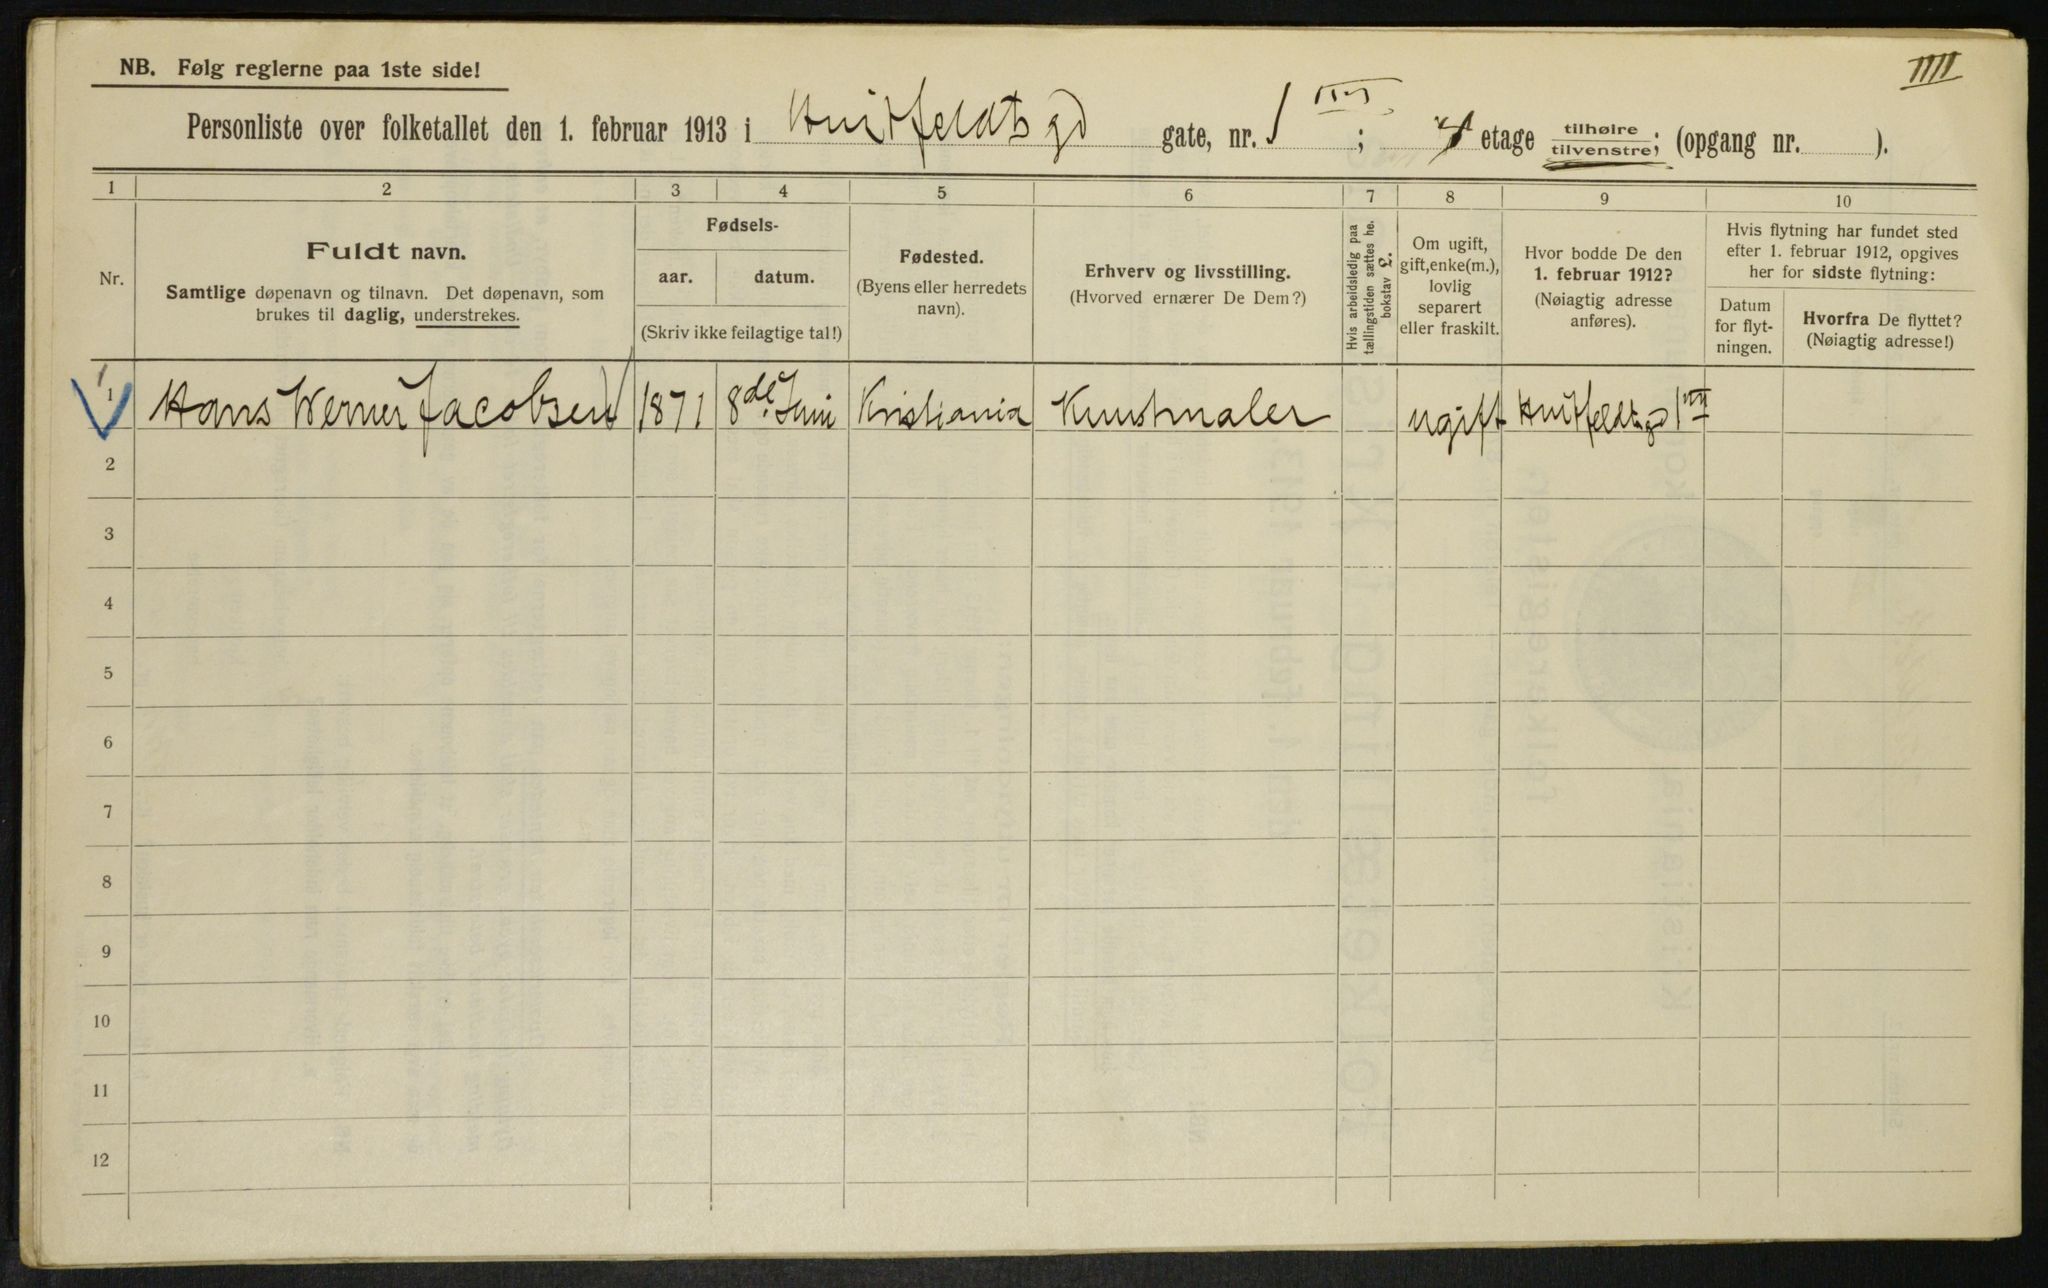 NB. Følg reglerne paa 1ste side!
Personliste over folketallet den 1. februar 1913 i Huitfeldtsgd gate, nr. 1 ; etage tilhøire tilvenstre; (opgang nr. ).
1 2 3 4 5 6 7 8 9 10
Nr.
Fuldt navn.
Samtlige døpenavn og tilnavn. Det døpenavn, som
brukes til daglig, understrekes.
Fødsels-
aar. datum.
(Skriv ikke feilagtige tal!)
Fødested.
(Byens eller herredets
navn).
Erhverv og livsstilling.
(Hvorved ernærer De Dem?)
Hvis arbeidsledig paa
tællingstiden sættes he.
bokstav L.
Om ugift,
gift, enke(m.),
lovlig
separert
eller fraskilt.
Hvor bodde De den
1. februar 1912?
(Nøiagtig adresse
anføres).
Hvis flytning har fundet sted
efter 1. februar 1912, opgives
her for sidste flytning:
Datum
for flyt-
ningen.
Hvorfra De flyttet?
(Nøiagtig adresse!)
1 Hans Werner Jacobsen 1871 8de Juni Kristiania Kunstmaler ugift Huitfeldtsgd 1
2
3
4
5
6
7
8
9
10
11
12